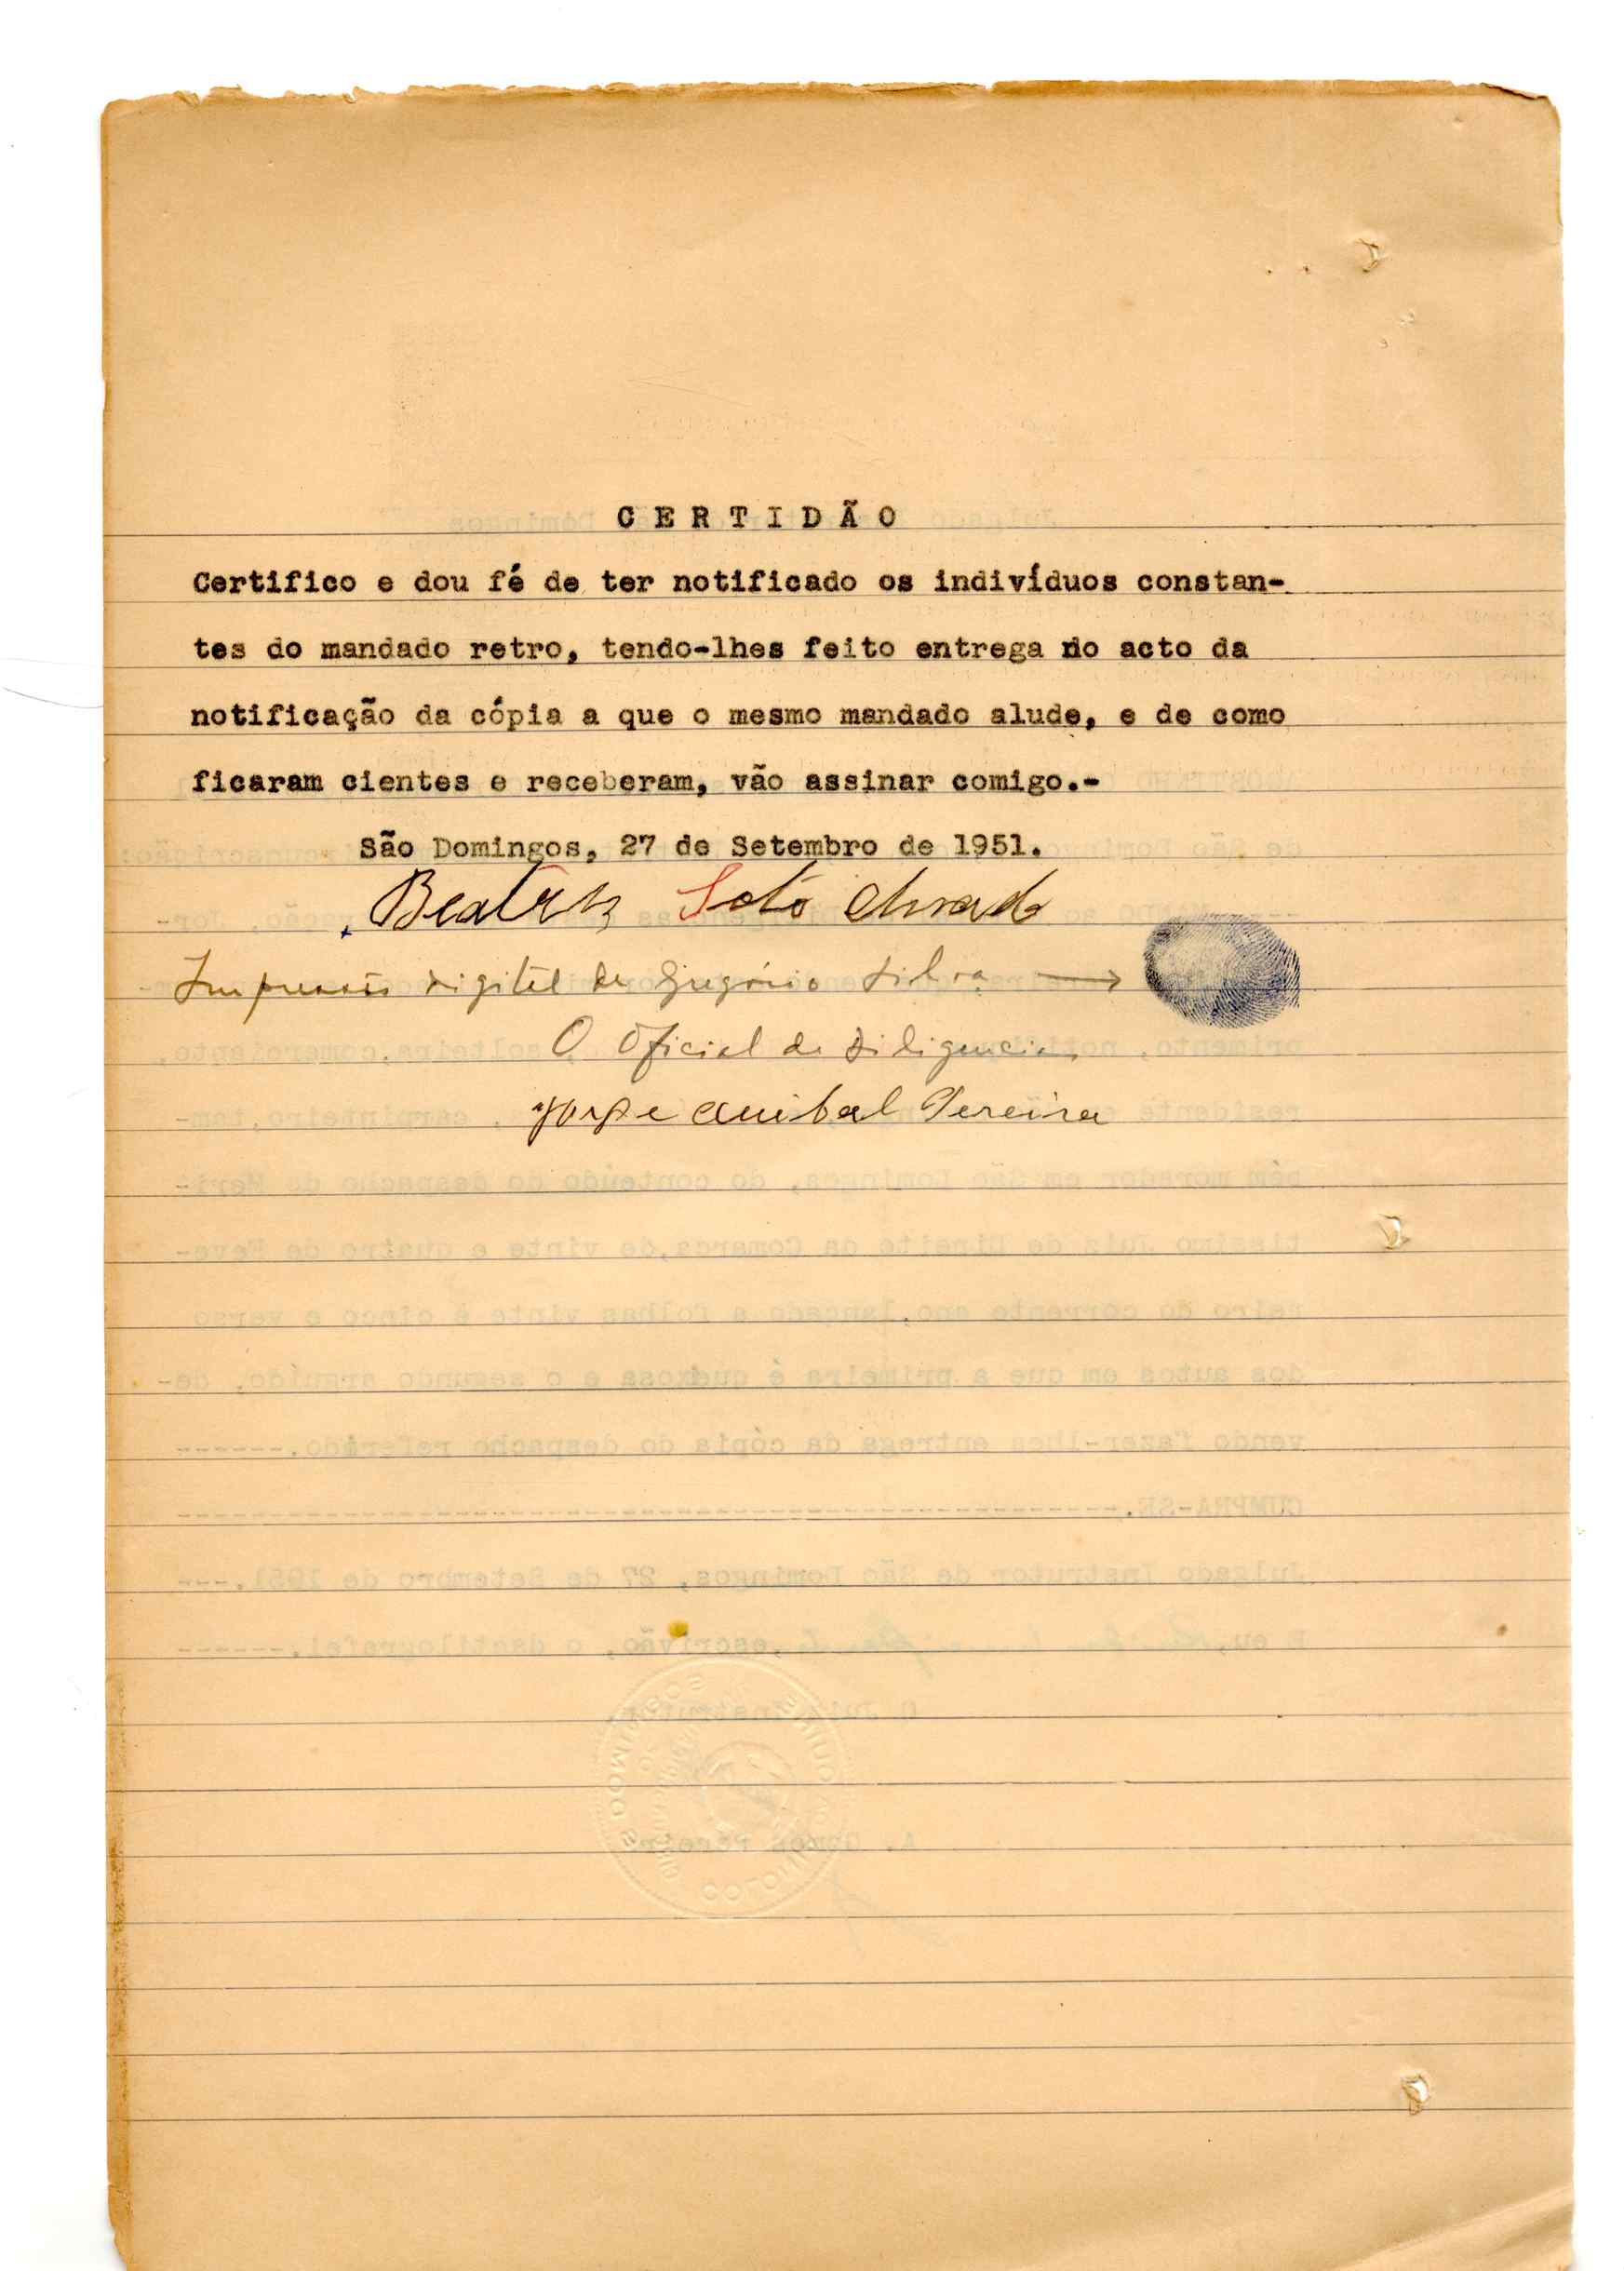 C E R T I D Ã O
Certifico e dou fé de ter notificado os indivíduos constan-
tes do mandado retro, tendo-lhes feito entrega no acto da
notificação da cópia a que o mesmo mandado alude, e de como
ficaram cientes e receberam, vão assinar comigo.-
São Domingos, 27 de Setembro de 1951.
Beatriz Soto
Impressão digital de Gregório Silva
O Oficial de Diligencias
Jorge Anibal Pereira